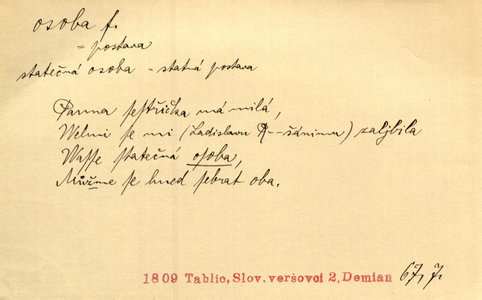 osoba f.
= postava
statečná osoba - statná postava
Panna sestřička má milá,
Welmi se mi (Ladislavu R--šánimu) zaljbila
Wasse statečná osoba,
Můžme se hned sebrat oba.
1809 Tablic, Slov. veršovci 2, Demian 67, 7.